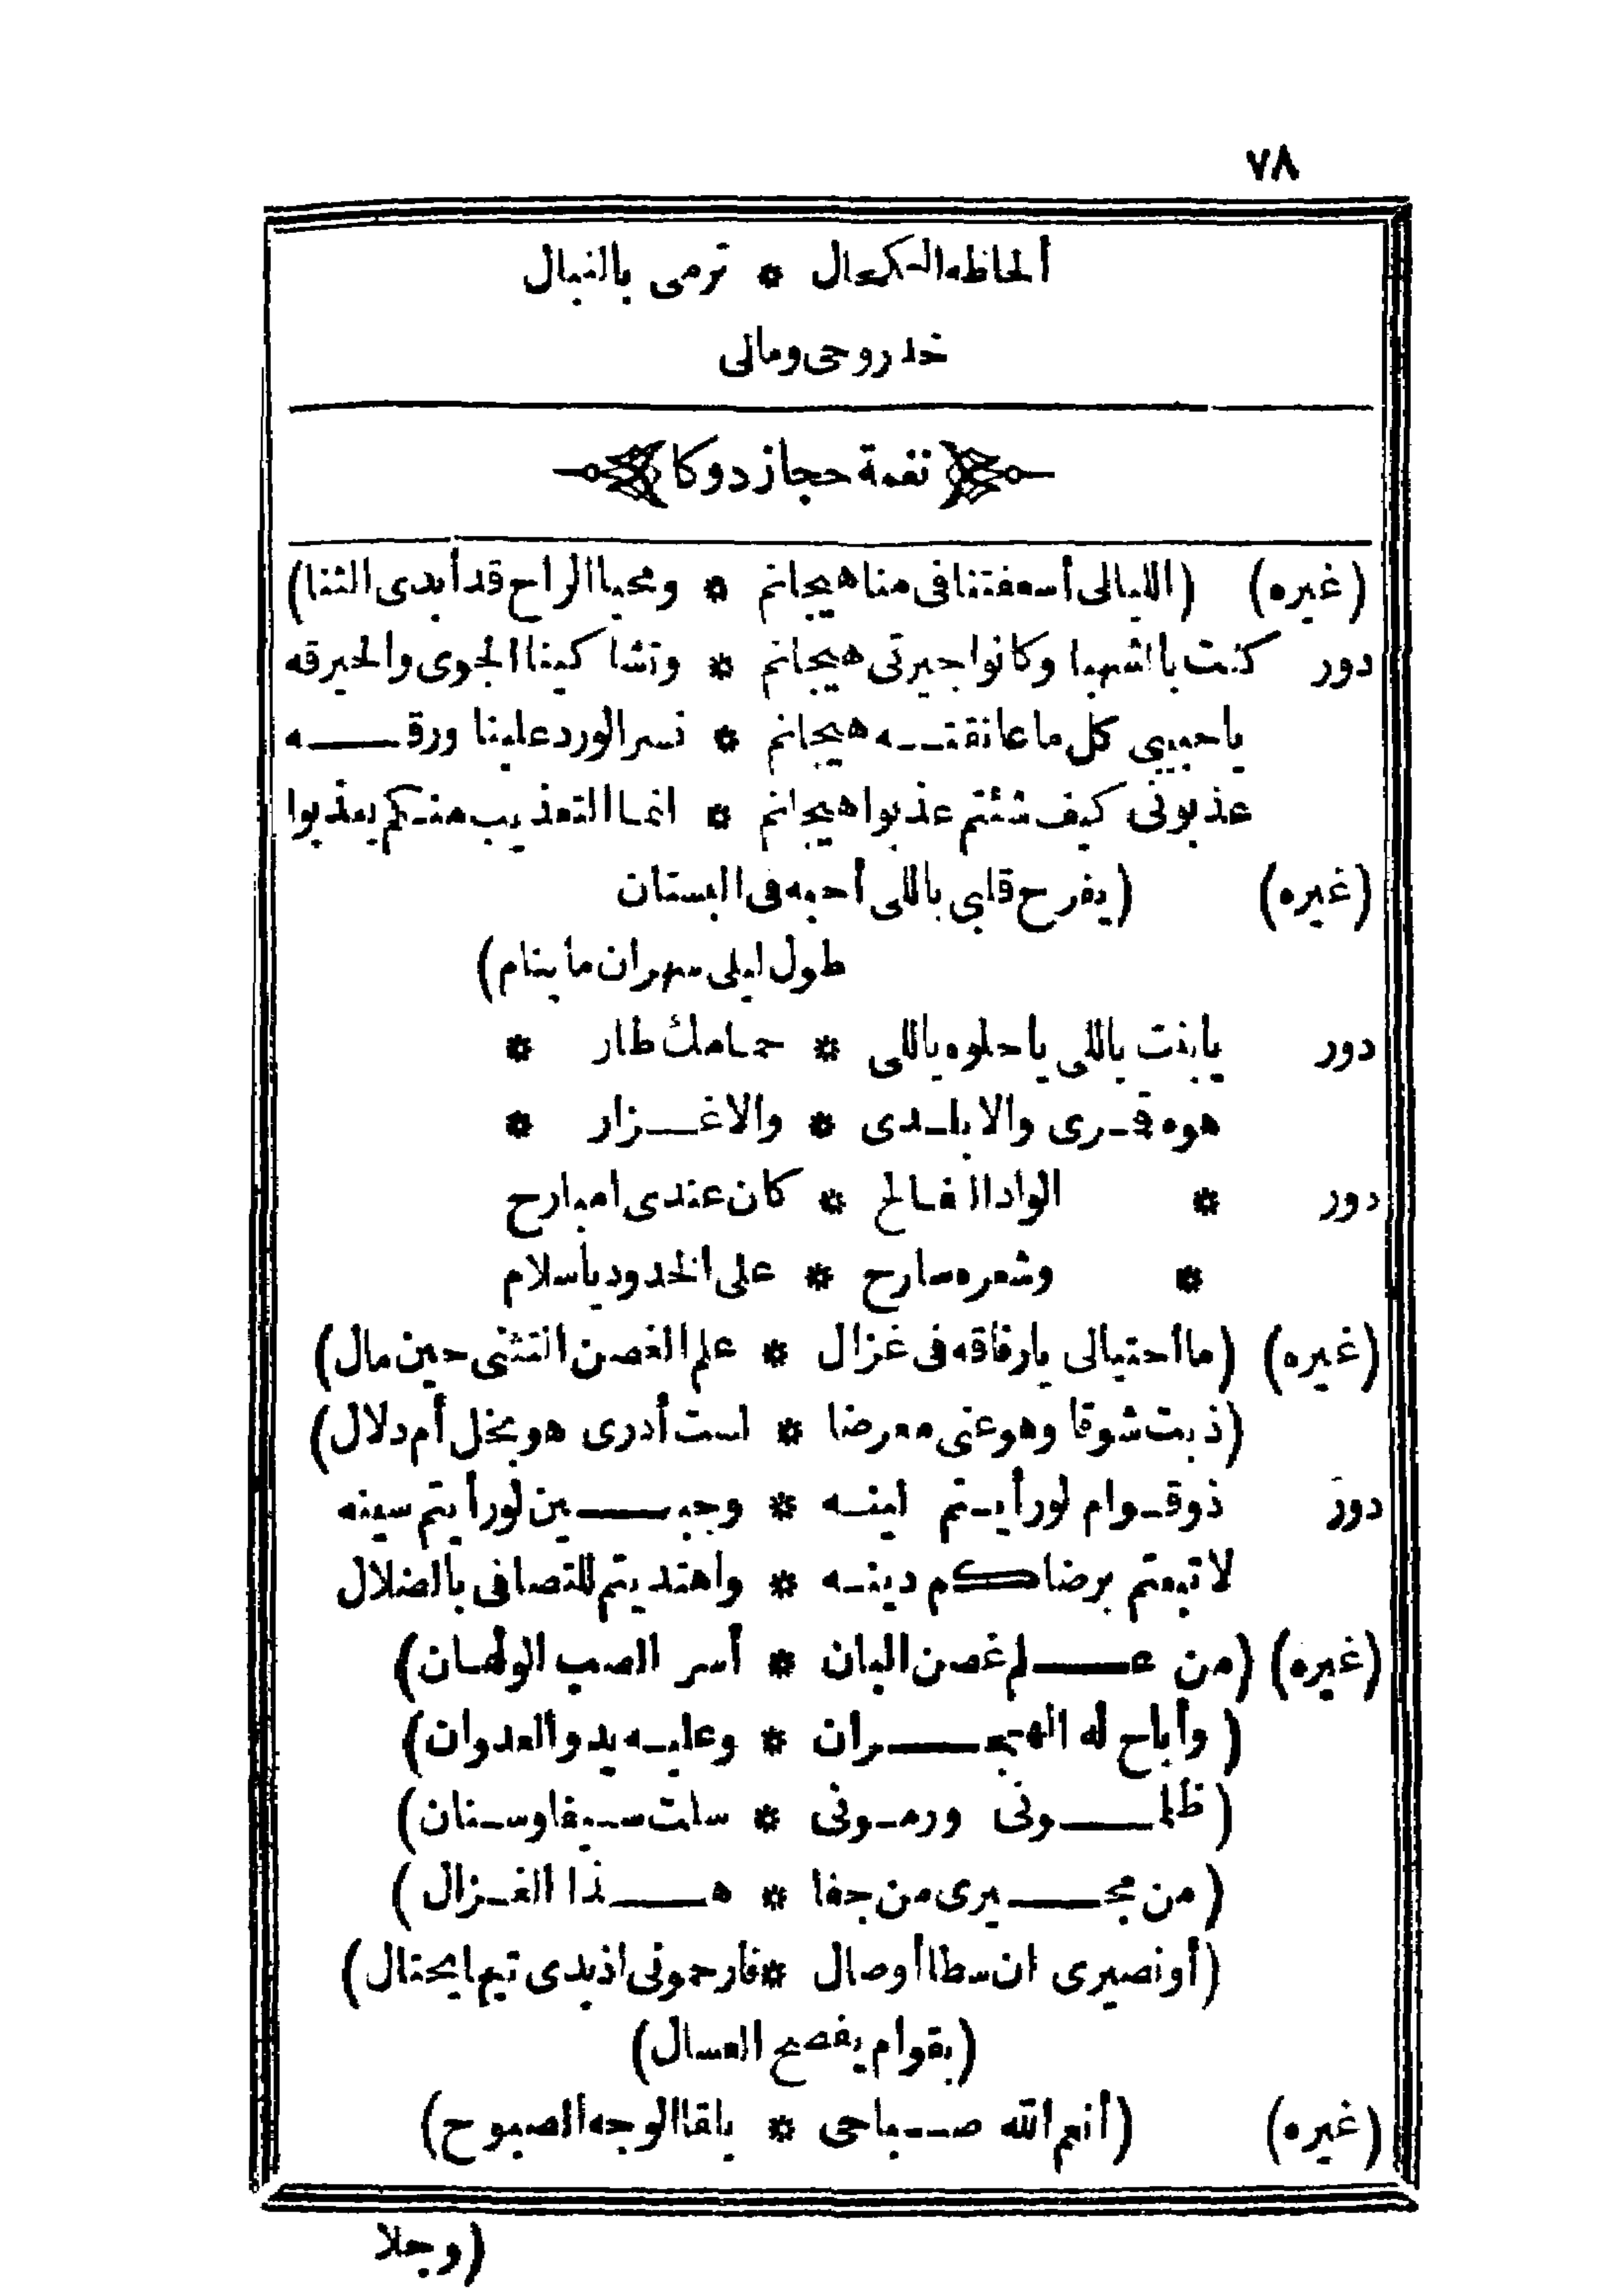 ٧٨
ألحاظه الكحال * ترمى بالنبال
خد روحى ومالى
نغمة حجاز دوكا
(غيره) (الليالى أسعفتنا فى منا هيجانم * ومحيا الراح قد أبدى الثنا)
دور كنت بالشهبا وكانوا جيرتى هيجانم * وتشاكينا الجوى والحيرقه
ياحبيبى كل ما عانقته هيجانم * نسر الورد علينا ورقه
عذبونى كيف شئتم عذبوا هيجانم * انما التعذيب منكم يعذبوا
(غيره) (يفرح قلبى ياللى أحبه فى البستان
طول ليلى سهران ما ينام)
دور يابنت ياللى ياحلوه ياللى * حمامك طار *
هوه قمرى والا بلدى * والا غزار *
دور * الواد الفالح * كان عندى امبارح
* وشعره سارح * على الخدود ياسلام
(غيره) (ما أحتيالى يارفاقه فى غزال * علم الغصن التثنى حين مال)
(ذبت شوقا وهو عنى معرضا * لست أدرى هو بخل أم دلال)
دور ذو قوام لو رأيتم لينه * وجبين لو رأيتم سينه
لاتبعتم برضاكم دينه * واهتديتم للتصافى بالضلال
(غيره) (من علم غصن البان * أسر الصب الولهان)
(وأباح له الهجران * وعليه يدو العدوان)
(ظلمونى ورمونى * سلت سيفا وسنان)
(من مجيرى من جفا * هذا الغزال)
(أو نصيرى ان سطا أو صال * فارحمونى اذ بدى تيها يختال)
(بقوام يفضح العسال)
(غيره) (أنعم الله صباحى * بلقا الوجه الصبوح)
(وجلا